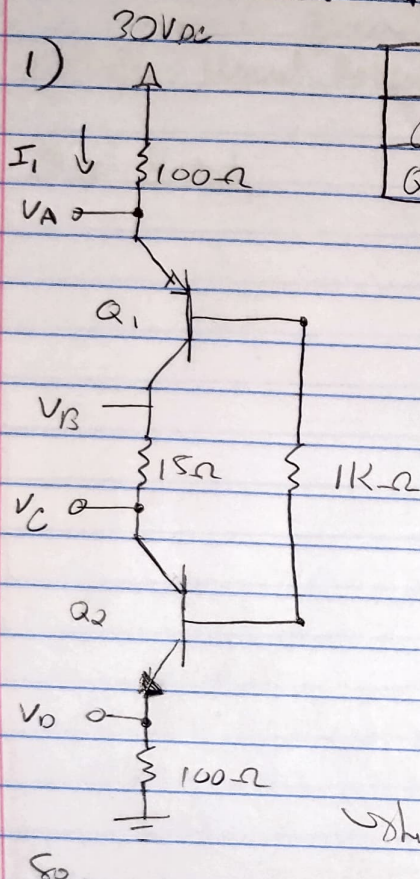 30VDC
1)
I1
100Ω
VA
Q1
VB
15Ω
1KΩ
VC
Q2
VD
100Ω
So